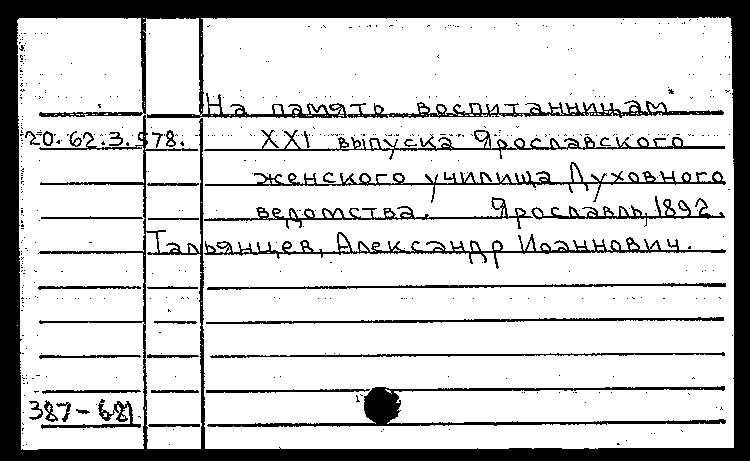 На память воспитанницам
20.62.3.578. XXI выпуска Ярославского
женского училища Духовного
ведомства. Ярославль, 1892.
Тальянцев, Александр Иоаннович.
387-681